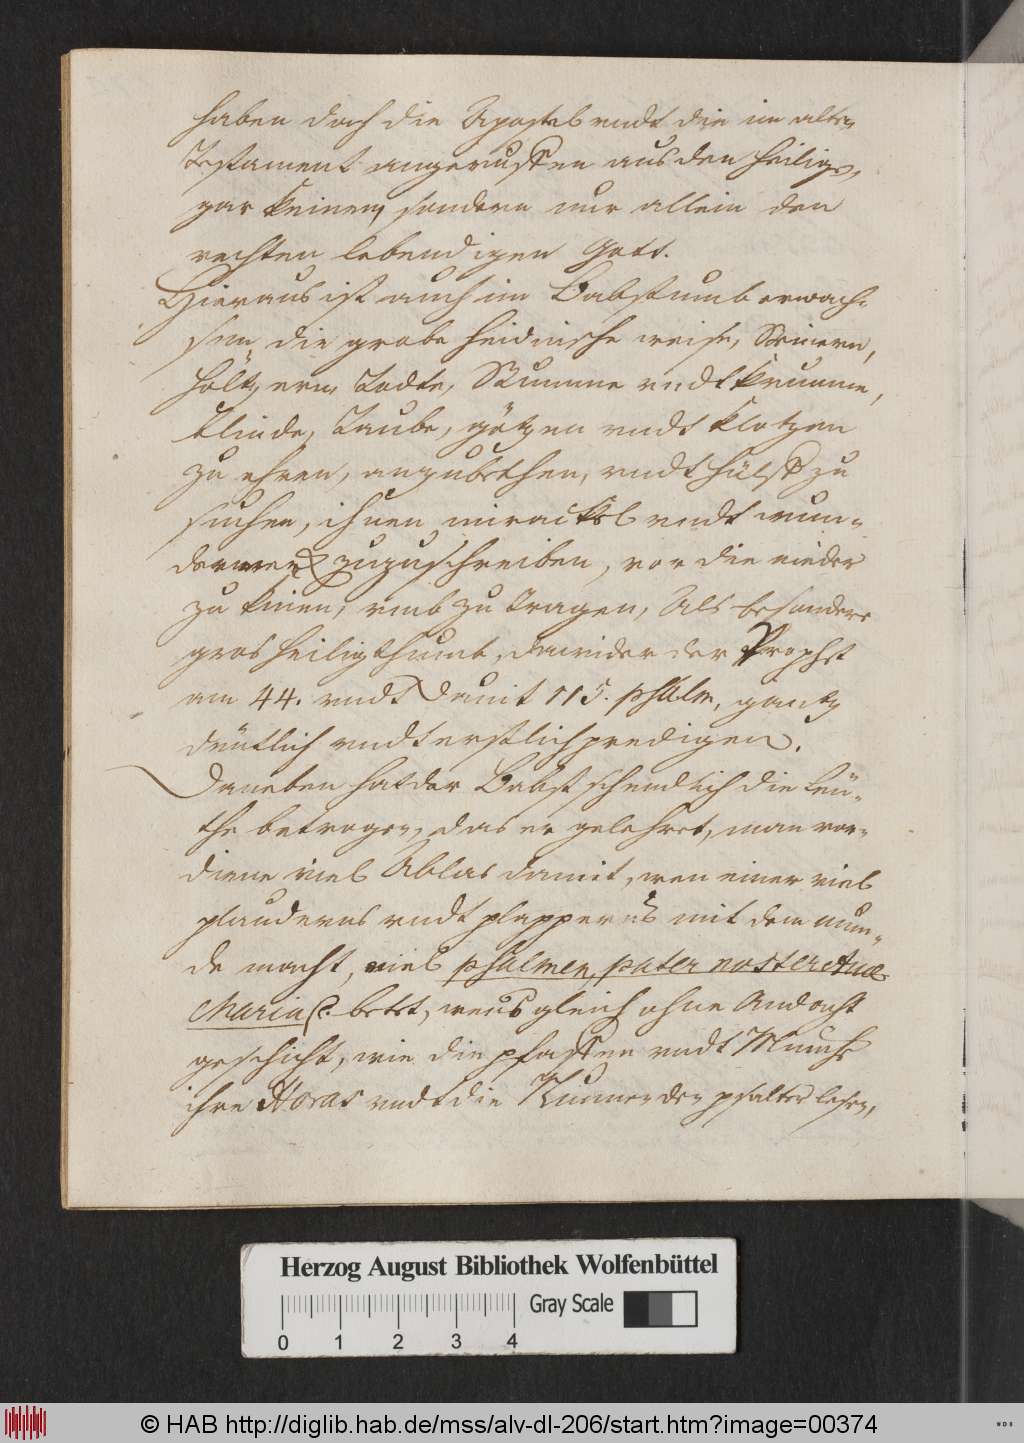 haben doch die Apostel undt die im alten
Testament angeruffen aus den heiligen,
gar keinen, sondern nur allein den
rechten lebendigen Gott.
Hieraus ist auch im Babstumb erwach-
sen die grobe heidnische weise, Steinern,
höltzern, Todte, Stumme undt krumme,
blinde, Taube, götzen undt Klotzen
zu ehren, anzubethen, undt hülff zu
suchen, ihnen mirackel undt wun-
derwerck zuzuschreiben, vor die nieder
zu knien, umb zu tragen, Als besondere
gros heiligthumb, dawider der Prophet
am 44. undt Dauit 115. psalm, gantz
deutlich undt erstlich predigen.
Daneben hat der Babst schendlich die Leü-
the betrogen, das er gelehret, man vor-
diene viel Ablas damit, wen einer viel
plauderns undt plapperns mit dem mun-
de macht, viel psalmen, pater noster Aue
Maria betet, wens gleich ohne Andacht
geschicht, wie die pfaffen undt Münche
ihre Horas undt die Nunnen den psalter lesen,
Herzog August Bibliothek Wolfenbüttel
0 1 2 3 4
Gray Scale
© HAB http://diglib.hab.de/mss/alv-dl-206/start.htm?image=00374
WDB